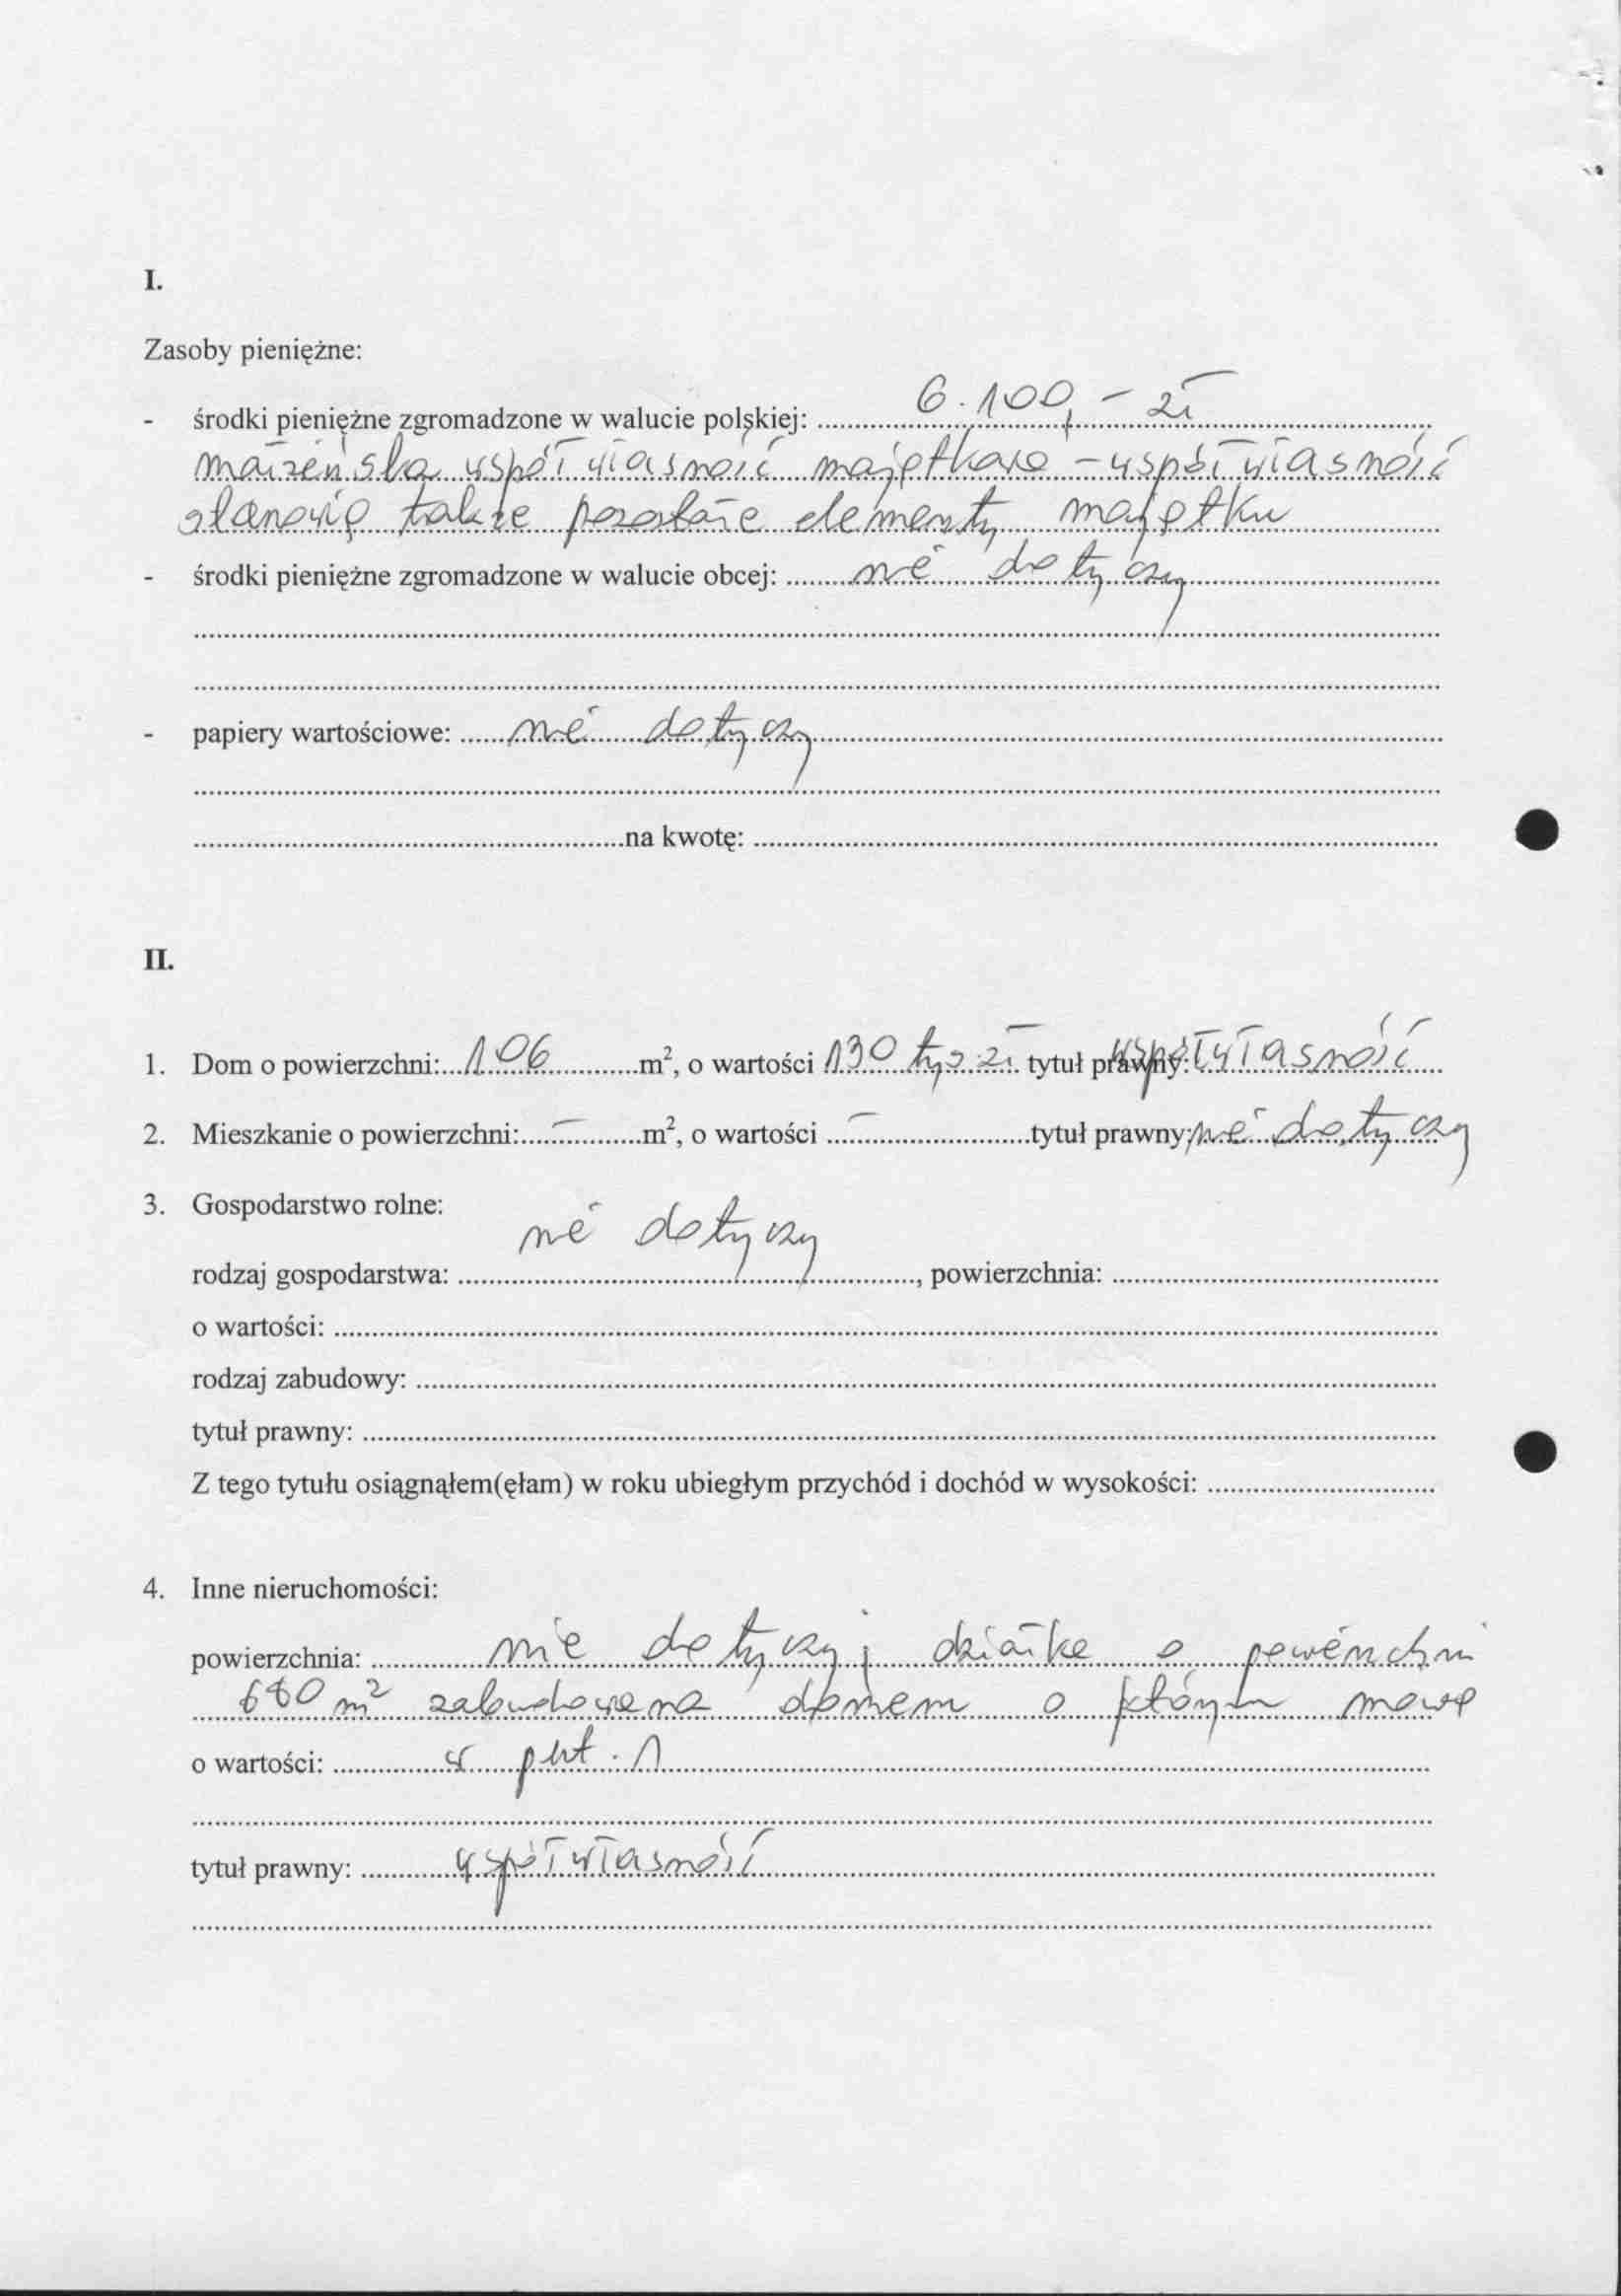 I.
Zasoby pieniężne:
- środki pieniężne zgromadzone w walucie polskiej: 6.100,- zł
małżeńska współwłasność majątkowa - współwłasność
stanowią także pozostałe elementy majątku
- środki pieniężne zgromadzone w walucie obcej: nie dotyczy
- papiery wartościowe: nie dotyczy
na kwotę:
II.
1. Dom o powierzchni: 106 m², o wartości 130 tys zł tytuł prawny: współwłasność
2. Mieszkanie o powierzchni: - m², o wartości - tytuł prawny: nie dotyczy
3. Gospodarstwo rolne:
nie dotyczy
rodzaj gospodarstwa: , powierzchnia:
o wartości:
rodzaj zabudowy:
tytuł prawny:
Z tego tytułu osiągnąłem(ęłam) w roku ubiegłym przychód i dochód w wysokości:
4. Inne nieruchomości:
powierzchnia: nie dotyczy; działka o powierzchni
m² zabudowana domem o którym mowa
o wartości: w pkt. 1
tytuł prawny: współwłasność